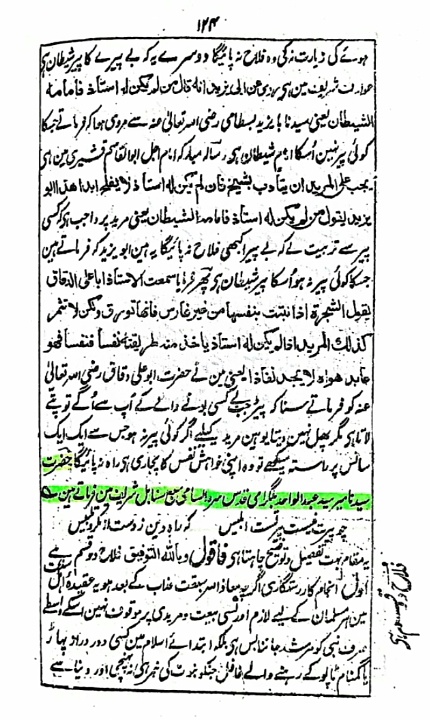 ۱۲۴
ہوئے کی زیارت نہ کی وہ فلاح نہ پائیگا دوسرے یہ کہ بے پیرے کا پیر شیطان ہی
عوارف شریف مین ہی روی عن ابی یزید انه قال من لم یکن له استاذ فامامه
الشیطان یعنی سیدنا بایزید بسطامی رضی اللہ تعالیٰ عنہ سے مروی ہوا کہ فرماتے جسکا
کوئی پیر نہین اُسکا امام شیطان ہی رسالہ مبارکہ امام اجل ابوالقاسم قشیری مین ہی
یجب علی المرید ان یتأدب بشیخ فان لم یکن له استاذ لا یفلح ابدا هذا ابو
یزید یقول من لم یکن له استاذ فامامه الشیطان یعنی مرید پر واجب ہی کہ کسی
پیر سے تربیت لے کہ بے پیرا کبھی فلاح نہ پائیگا یہ ہین ابو یزید کہ فرماتے ہین
جسکا کوئی پیر نہ ہو اُسکا پیر شیطان ہی پھر فرمایا سمعت الاستاذ ابا علی الدقاق
یقول الشجرة اذا نبتت بنفسها من غیر غارس فانها تورق ولکن لا تثمر
کذلک المرید اذا لم یکن له استاذ یاخذ منه طریقته نفسا فنفسا فهو
عابد هواه لا یجد نفاذا یعنی مین نے حضرت ابو علی دقاق رضی اللہ تعالیٰ
عنہ کو فرماتے سنا کہ پیڑ جب بے کسی بونے والے کے آپ سے اُگے تو پتے
لاتا ہی مگر پھل نہین دیتا یوہین مرید کیلیے اگر کوئی پیر نہ ہو جس سے ایک ایک
سانس پر راستہ سیکھے تو وہ اپنی خواہش نفس کا پجاری ہی راہ نہ پائیگا حضرت
سیدنا میر سید عبدالواحد بلگرامی قدس سرہ السامی سبع سنابل شریف مین فرماتے ہین
چو پیرت نیست پیر تست ابلیس کہ راہ دین زدست از مکر و تلبیس
یہ مقام بہت تفصیل و توضیح چاہتا ہی فاقول وباللہ التوفیق فلاح دو قسم ہے
اول انجام کار رستگاری اگرچہ معاذ اللہ سبقت عذاب کے بعد ہو یہ عقیدۂ اہل سنت
مین ہر مسلمان کے لیے لازم اور کسی بیعت و مریدی پر موقوف نہین اسکے واسطے
صرف نبی کو مرشد جاننا بس ہی بلکہ ابتدائے اسلام مین کسی دور دراز پہاڑ
یا گمنام ٹاپو کے رہنے والے غافل جنکو نبوت کی خبر ہی نہ پہنچی اور دنیا سے
فلاح دو قسم ہی